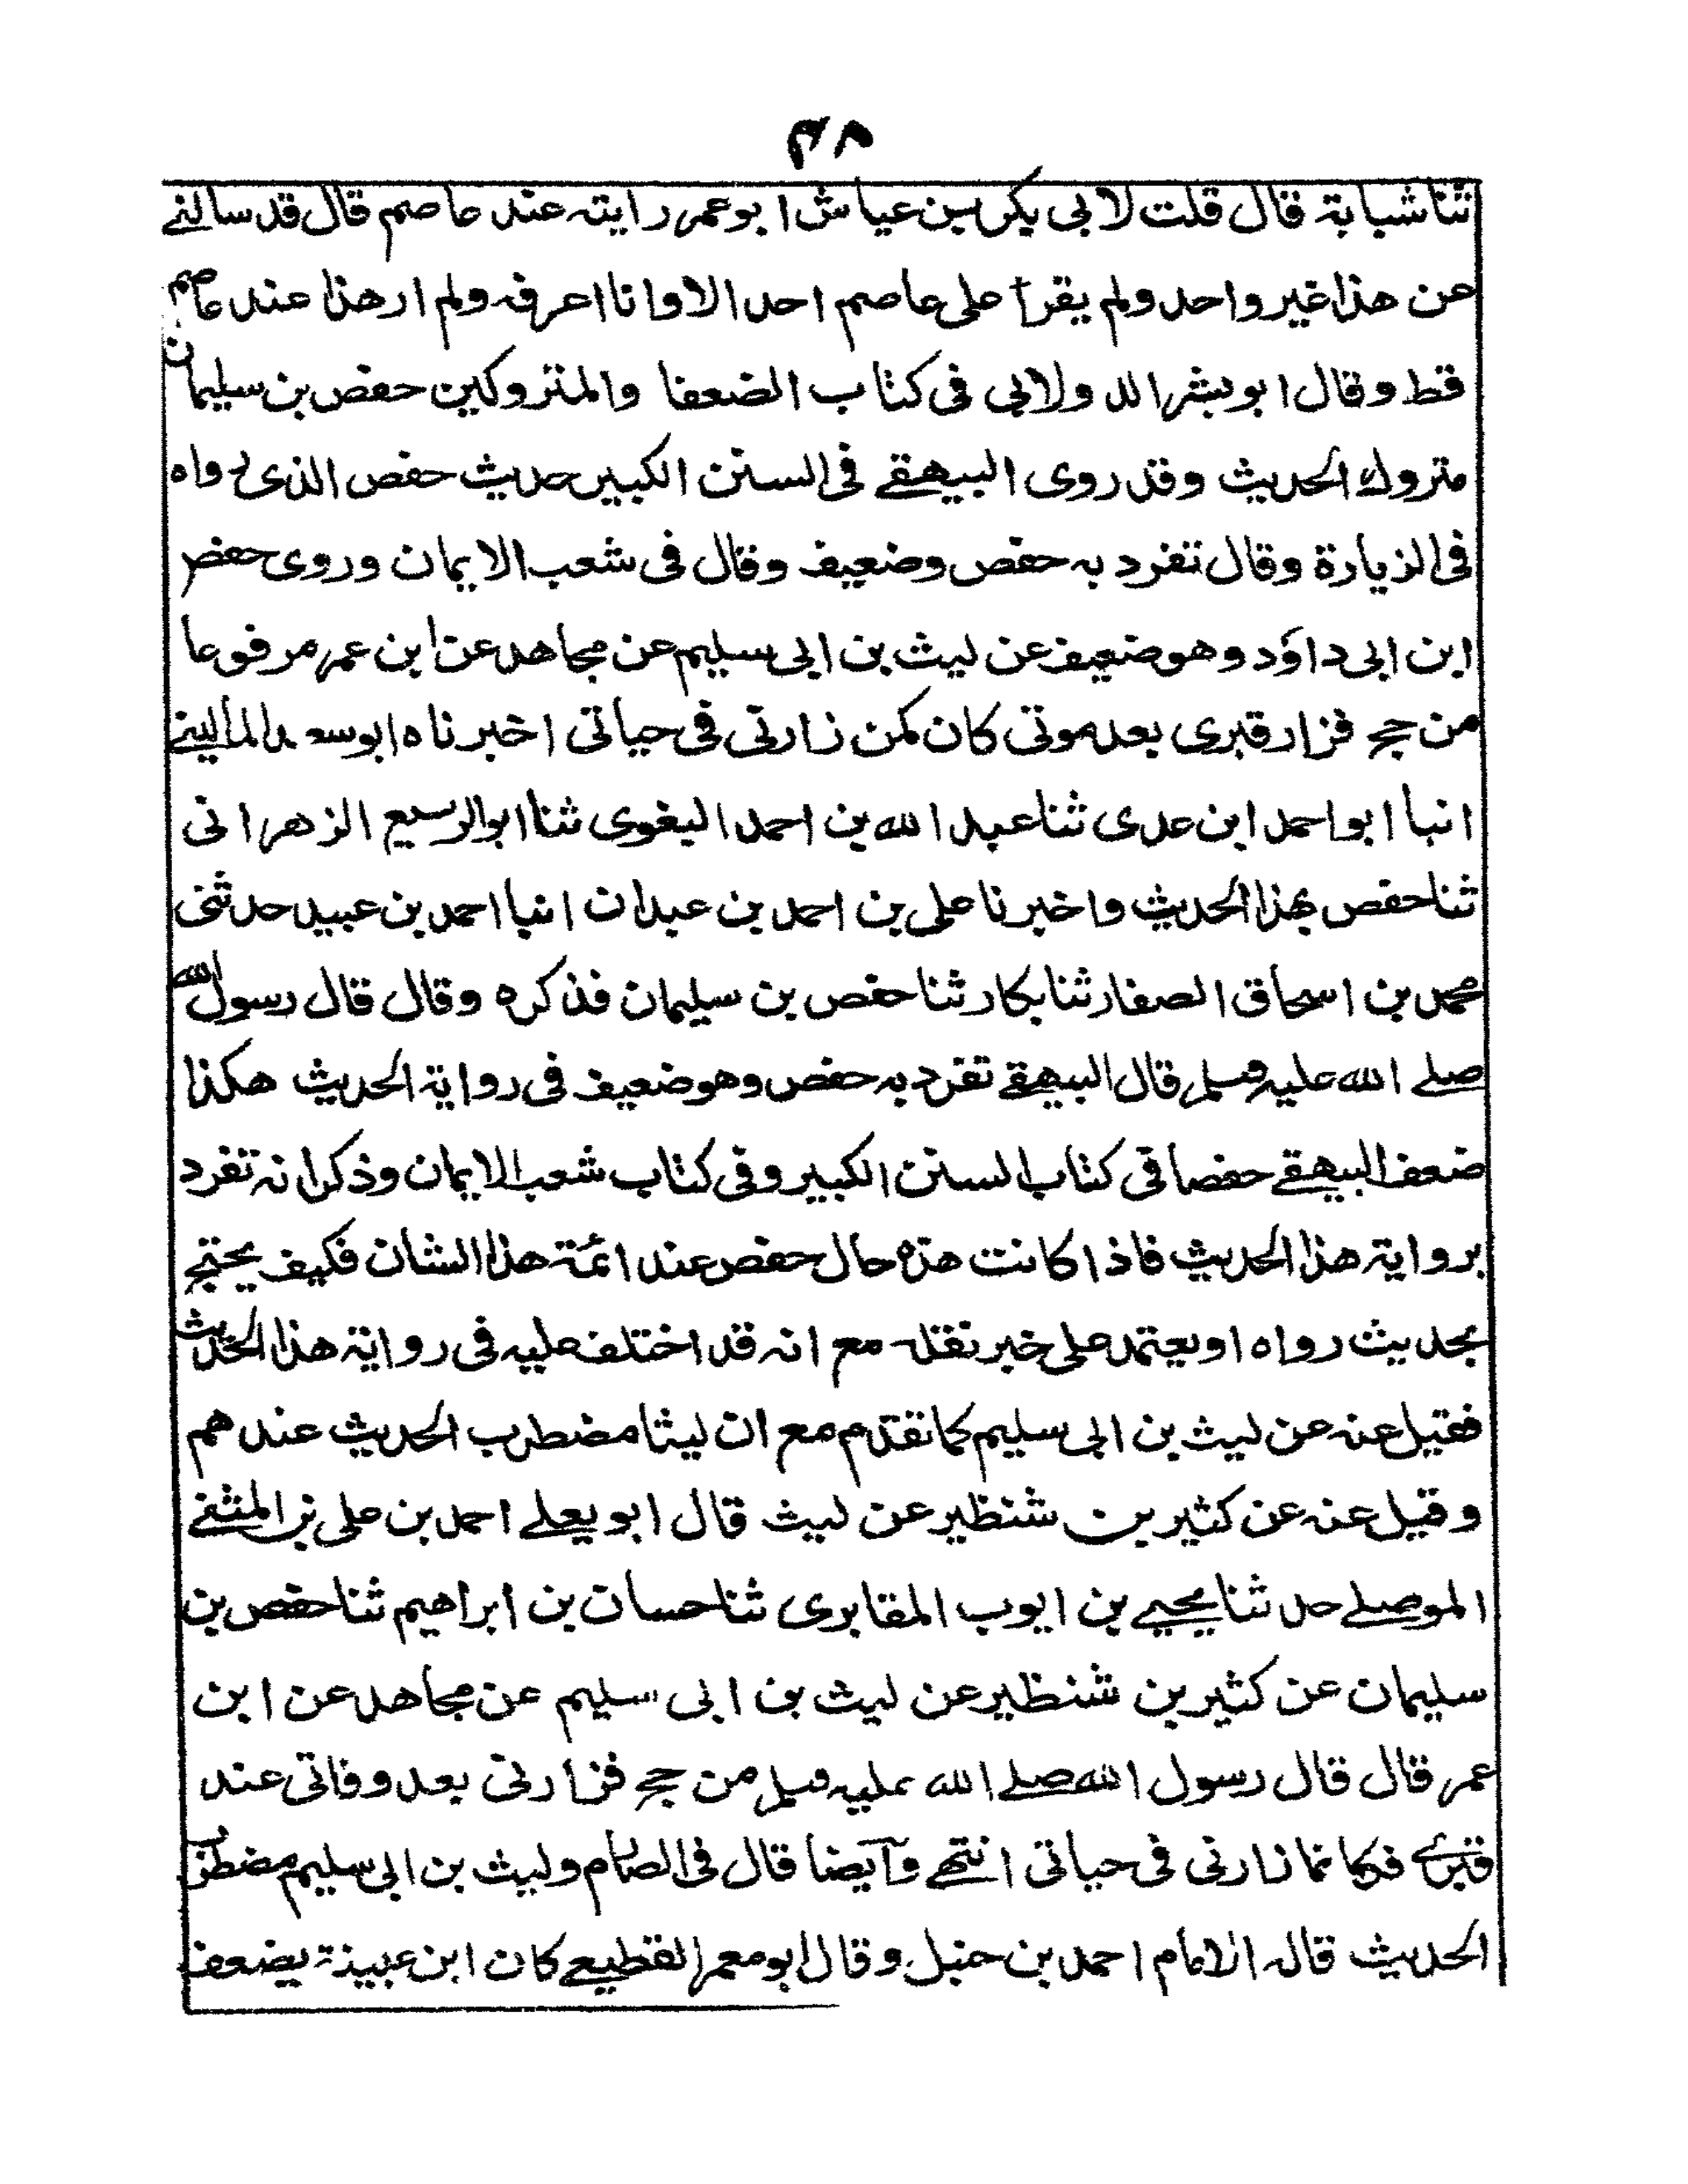 ٣٨
ثنا شبابة قال قلت لابی بکر بن عیاش ابو عمر رایته عند عاصم قال قد سالنے
عن هذا غیر واحد ولم یقرأ علی عاصم احد الا وانا اعرفه ولم ار هذا عند عاصم
قط وقال ابو بشر الدولابی فی کتاب الضعفا والمتروکین حفص بن سلیمان
متروك الحدیث وقد روی البیهقے فی السنن الکبیر حدیث حفص الذی رواه
فی الزیارة وقال تفرد به حفص وضعیف وقال فی شعب الایمان وروی حفص
ابن ابی داؤد وهو ضعیف عن لیث بن ابی سلیم عن مجاهد عن ابن عمر مرفوعا
من حج فزار قبری بعد موتی کان کمن زارنی فی حیاتی اخبرناه ابو سعد المالینے
انبا ابو احمد ابن عدی ثنا عبد الله بن احمد البغوی ثنا ابو الربیع الزهرانی
ثنا حفص بهذا الحدیث واخبرنا علی بن احمد بن عبدان انبا احمد بن عبید حدثنی
محمد بن اسحاق الصفار ثنا بکار ثنا حفص بن سلیمان فذکره وقال قال رسول الله
صلے الله علیه وسلم قال البیهقے تفرد به حفص وهو ضعیف فی روایة الحدیث هکذا
ضعف البیهقے حفصا فی کتاب السنن الکبیر وفی کتاب شعب الایمان وذکر انه تفرد
بروایة هذا الحدیث فاذا کانت هذه حال حفص عند ائمة هذا الشان فکیف یحتج
بحدیث رواه او یعتمد علی خبر نقله مع انه قد اختلف علیه فی روایة هذا الحدیث
فقیل عنه عن لیث بن ابی سلیم کما تقدم مع ان لیثا مضطرب الحدیث عندهم
وقیل عنه عن کثیر بن شنظیر عن لیث قال ابو یعلے احمد بن علی بن المثنے
الموصلے حدثنا یحیے بن ایوب المقابری ثنا حسان بن ابراهیم ثنا حفص بن
سلیمان عن کثیر بن شنظیر عن لیث بن ابی سلیم عن مجاهد عن ابن
عمر قال قال رسول الله صلے الله علیه وسلم من حج فزارنی بعد وفاتی عند
قبرے فکانما زارنی فی حیاتی انتهے وآیضا قال فی الصارم ولیث بن ابی سلیم مضطرب
الحدیث قاله الامام احمد بن حنبل وقال ابو معمر القطیعے کان ابن عیینة یضعف